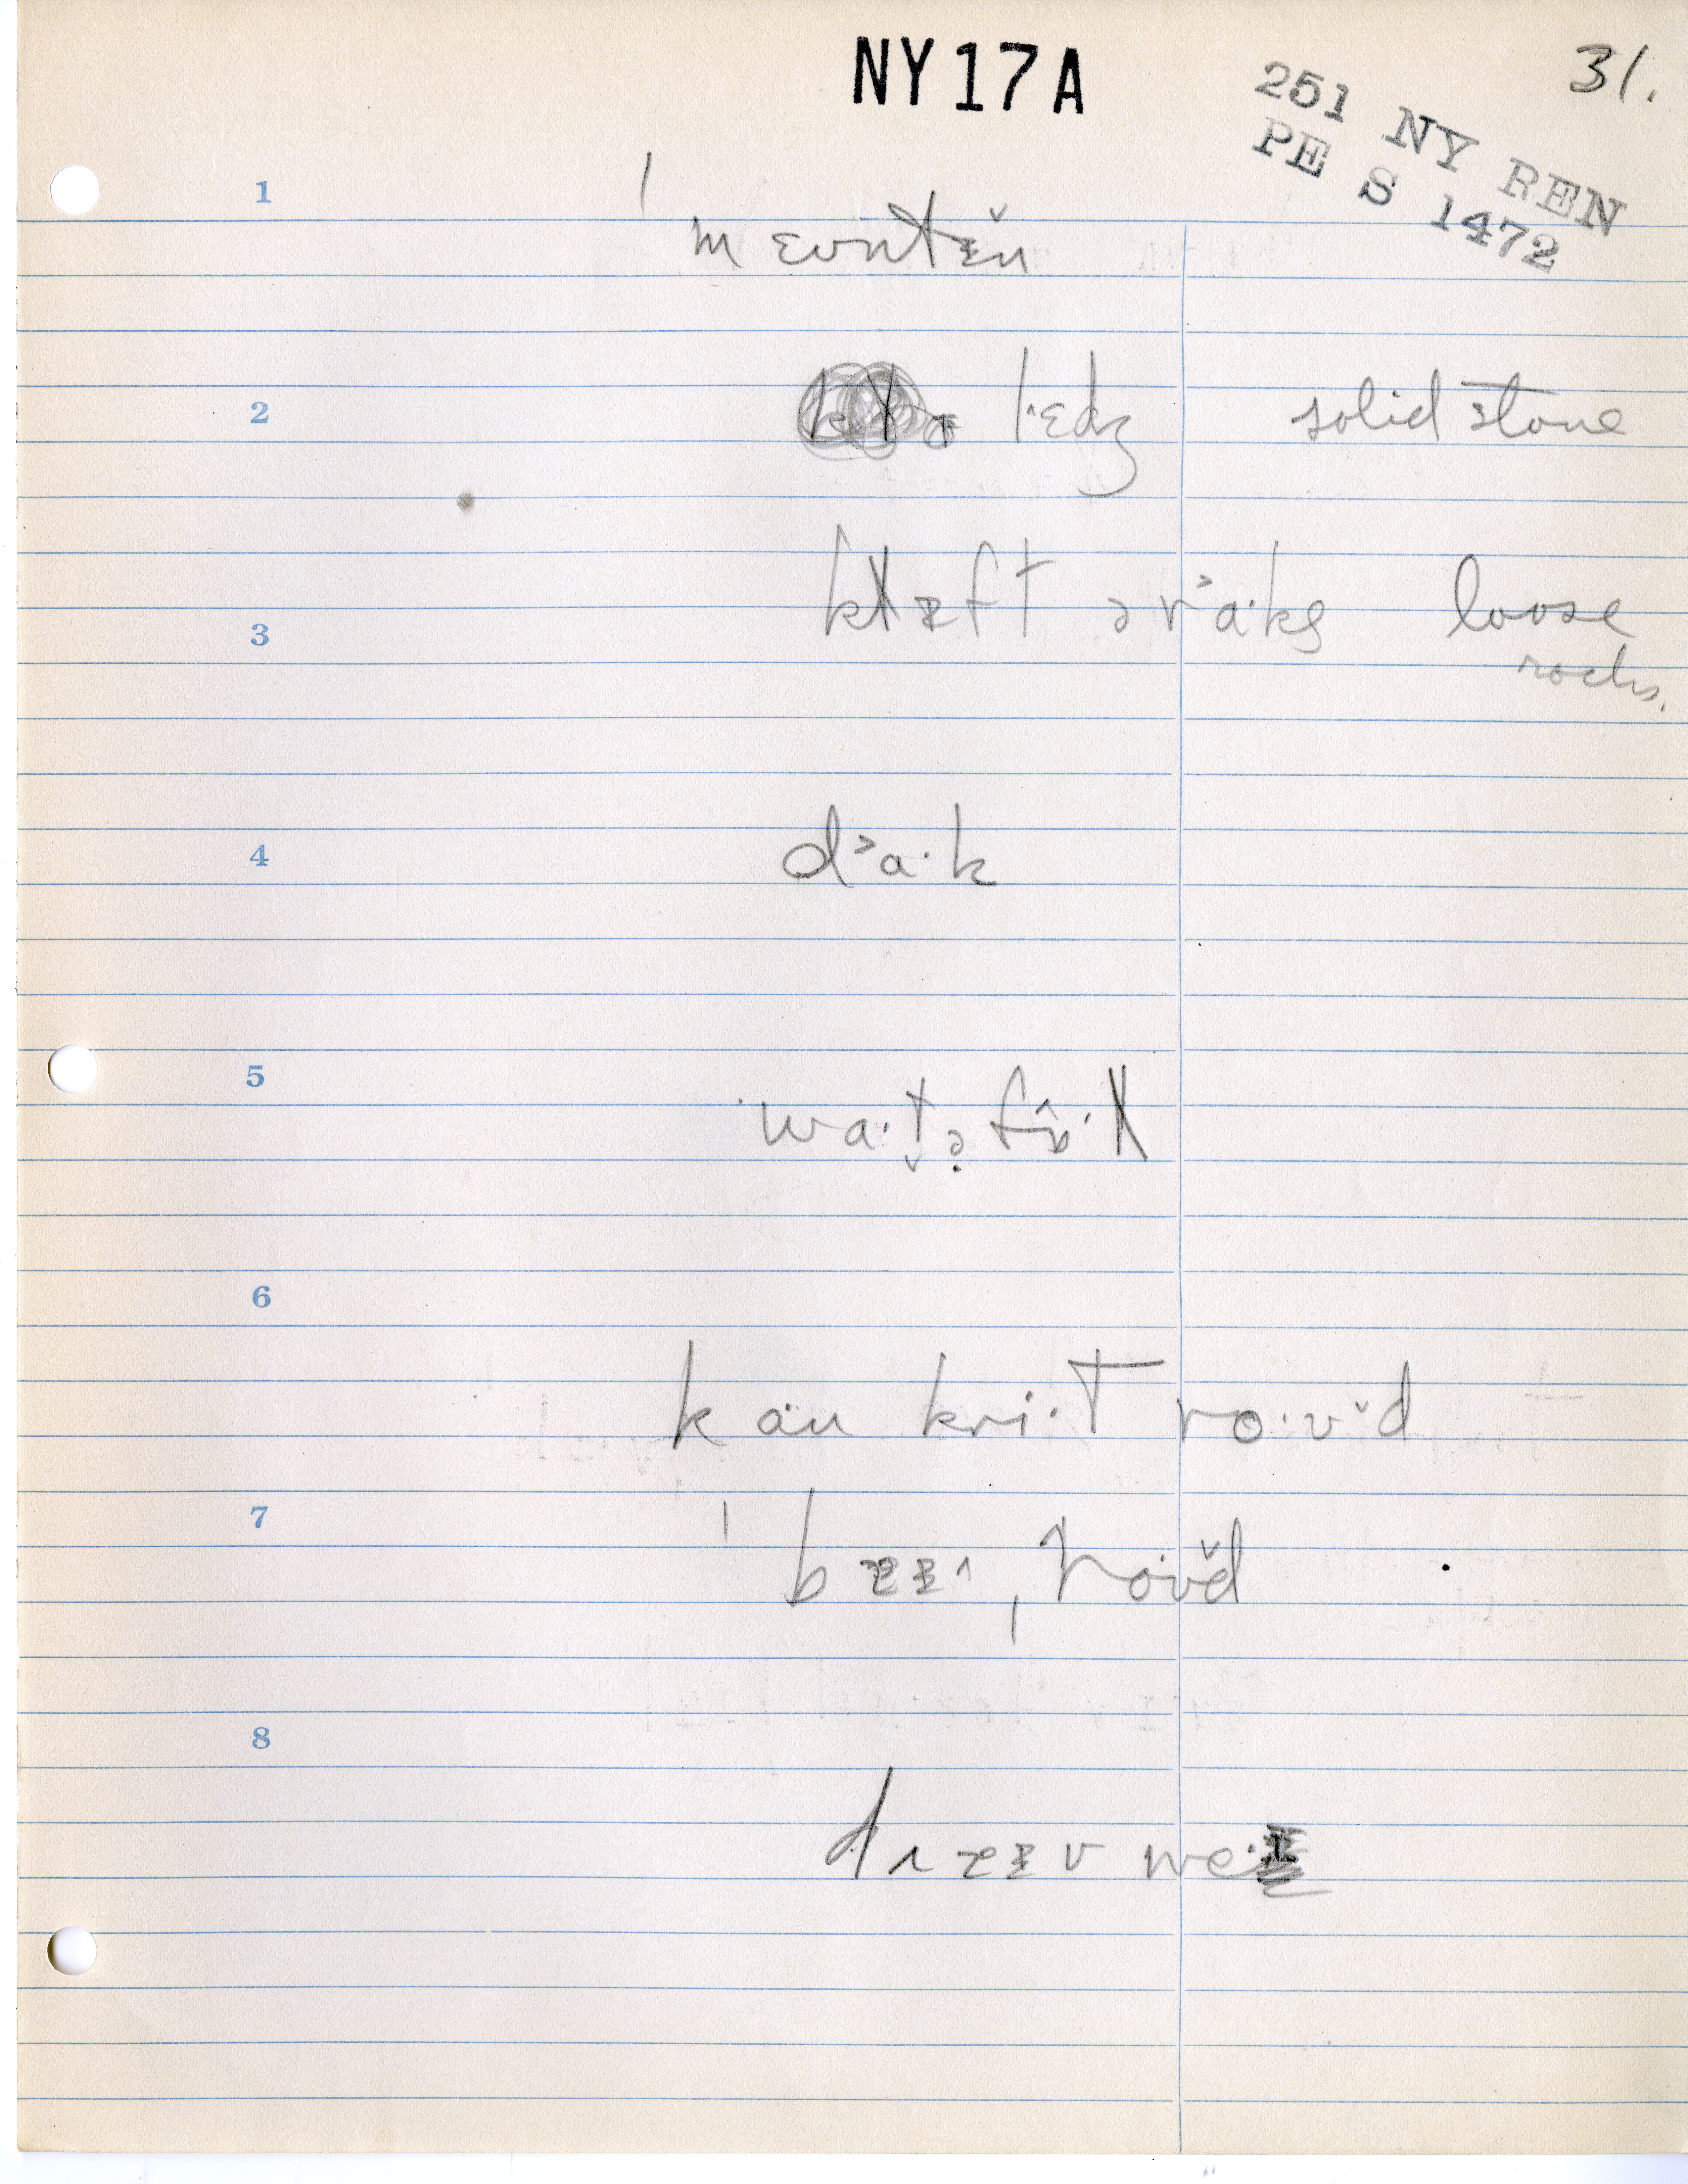 NY17A
31.
251 NY REN
PE S 1472
1
ˈmɛʊntɪ̆n
2
lˑɛdʒ solid stone
3
klæft ərˈaˑks loose
rocks.
4
d˃aˑk
5
waˑt̬əfɒ̂ˑl
6
kankriˑt roˑʊ̆d
7
ˈbæɪˌroˑʊ̆d
8
draɪv weˑɪ